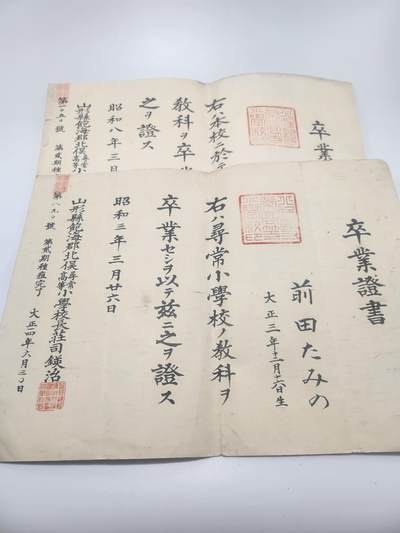 卒業
右ハ本校ニ於テ
教科ヲ卒
之ヲ證ス
昭和八年三月
山形縣飽海郡北俣尋常高等小
號 第貳期種
卒業證書
前田たみの
大正三年十二月十六日生
右ハ尋常小學校ノ教科ヲ
卒業セシヲ以テ茲ニ之ヲ證ス
昭和三年三月廿六日
山形縣飽海郡北俣尋常高等小學校長莊司治
第八九〇號 第貳期種痘完了 大正四年六月三〇日